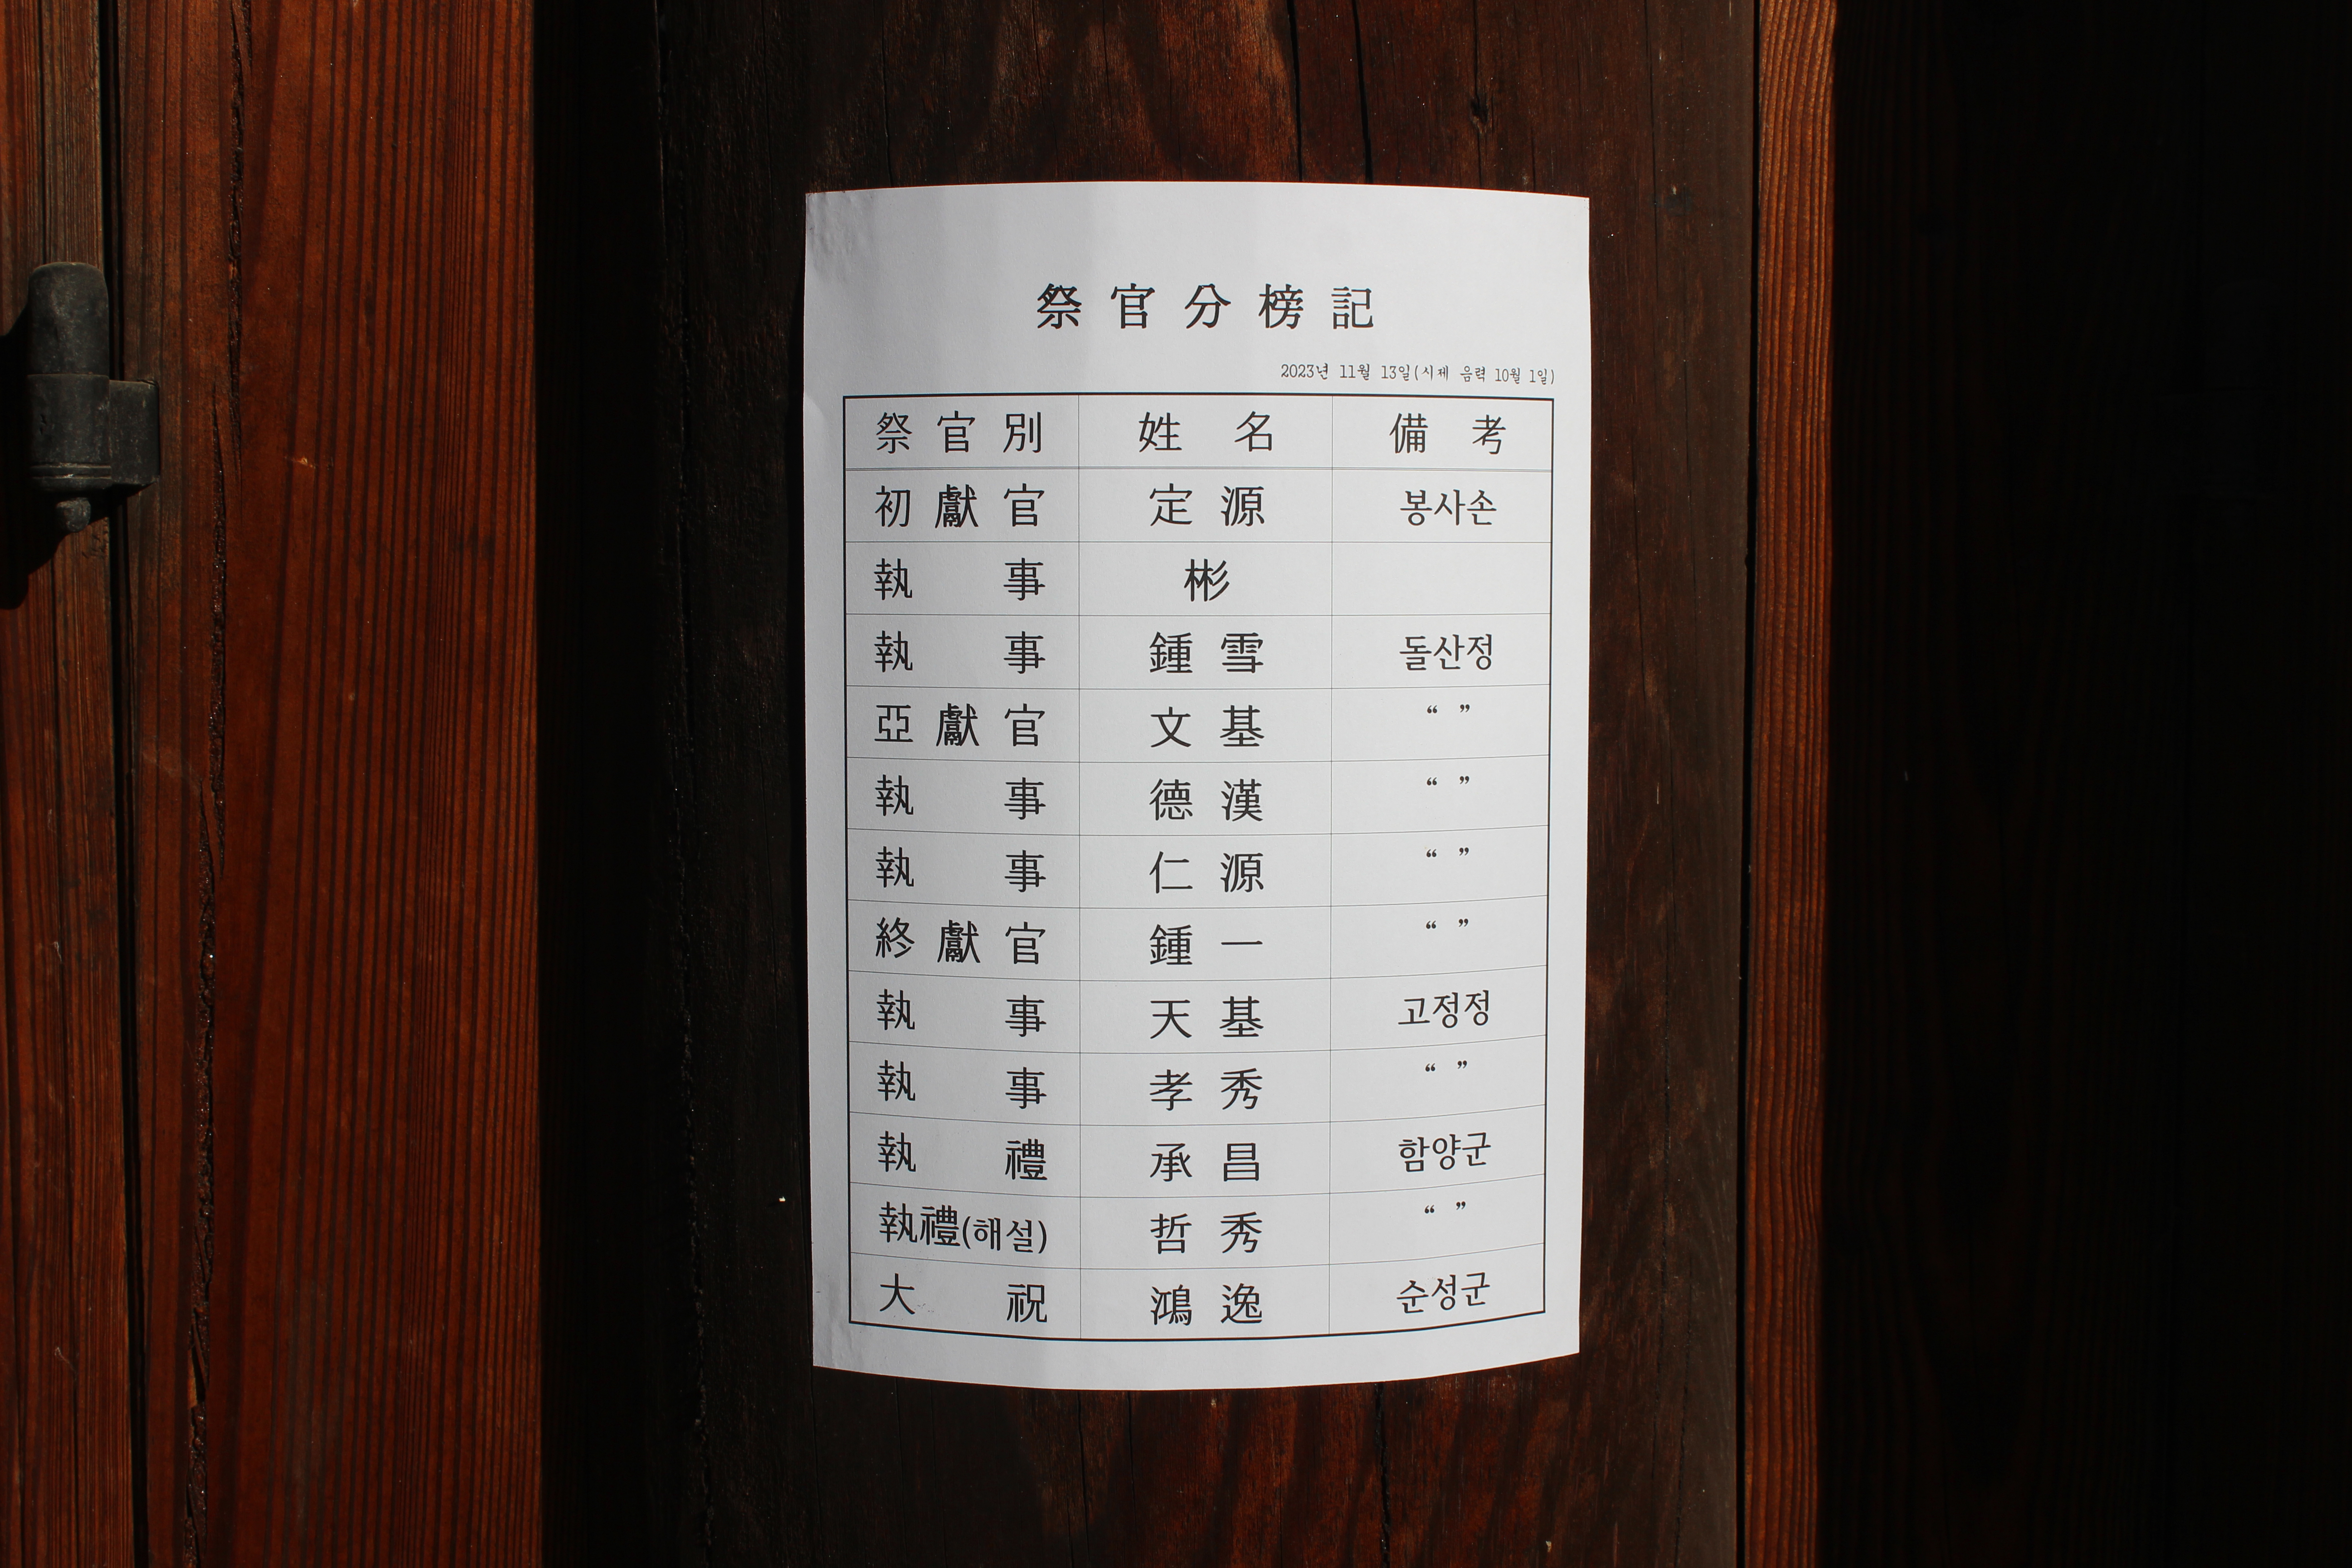 祭官分榜記
2023년 11월 13일(시제 음력 10월 1일)
祭官別 姓名 備考
初獻官 定源 봉사손
執事 彬
執事 鍾雪 돌산정
亞獻官 文基 “ ”
執事 德漢 “ ”
執事 仁源 “ ”
終獻官 鍾一 “ ”
執事 天基 고정정
執事 孝秀 “ ”
執禮 承昌 함양군
執禮(해설) 哲秀 “ ”
大祝 鴻逸 순성군